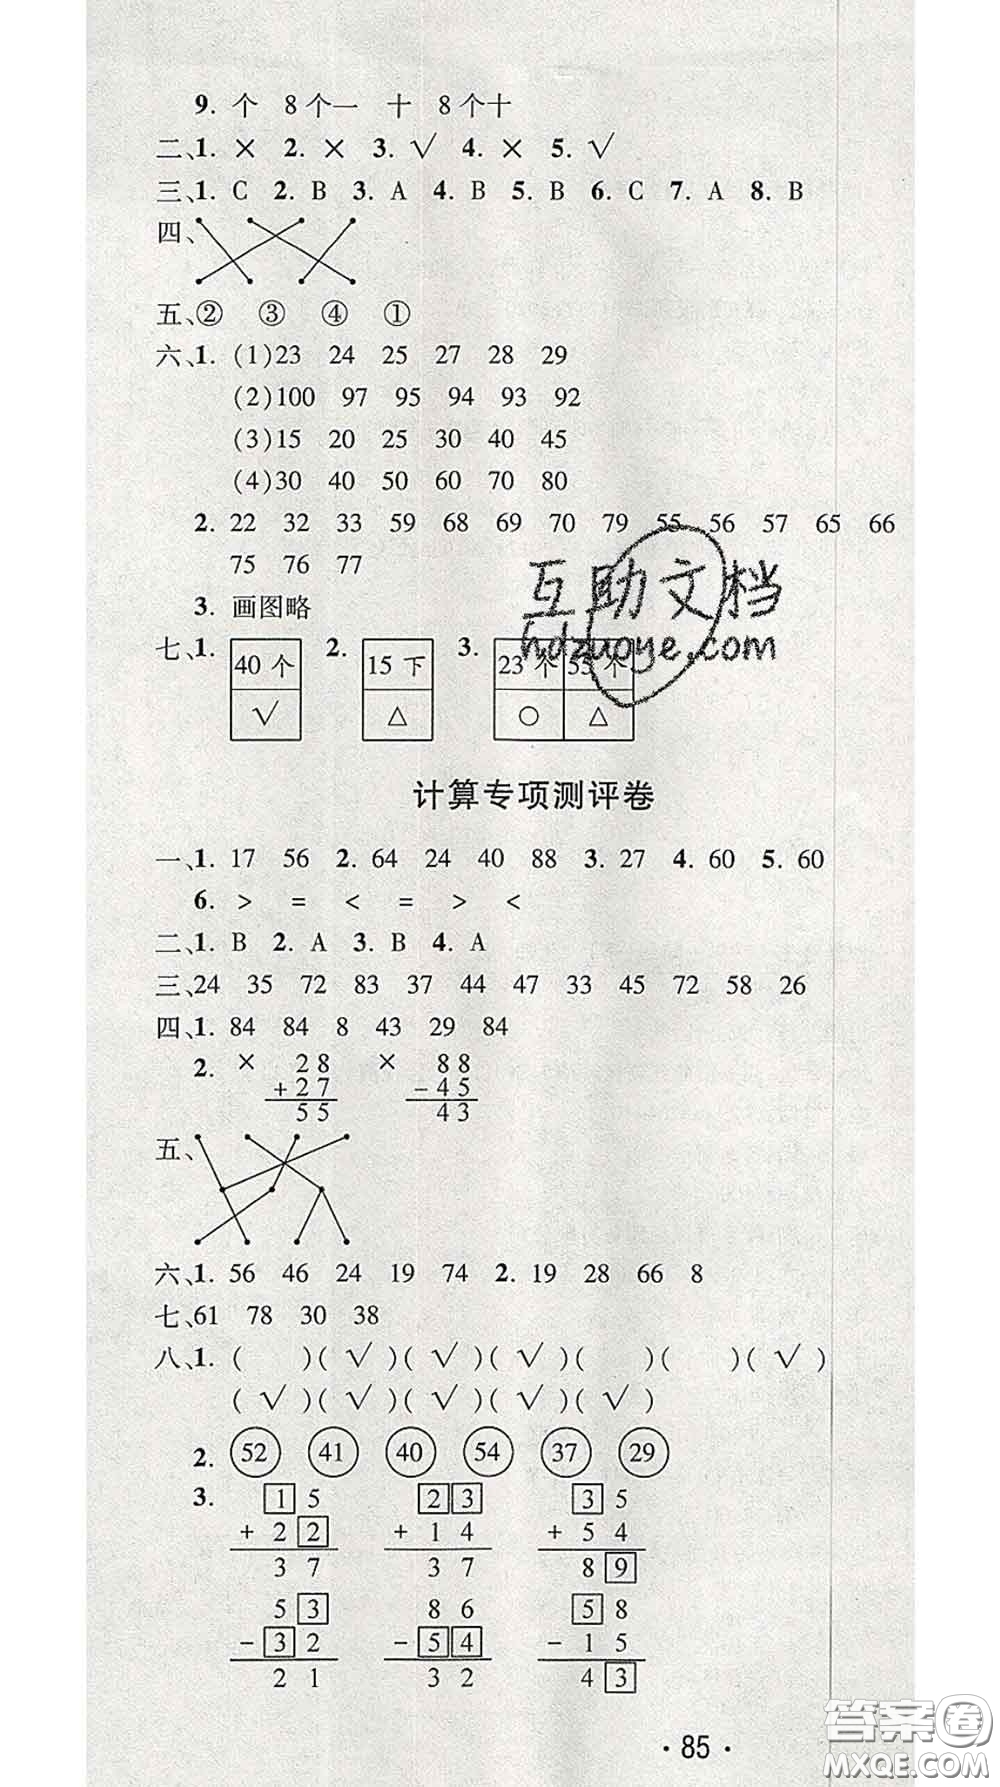 9. 个 8个一 十 8个十
二、1. × 2. × 3. √ 4. × 5. √
三、1. C 2. B 3. A 4. B 5. B 6. C 7. A 8. B
四、
五、② ③ ④ ①
六、1. (1)23 24 25 27 28 29
(2)100 97 95 94 93 92
(3)15 20 25 30 40 45
(4)30 40 50 60 70 80
2. 22 32 33 59 68 69 70 79 55 56 57 65 66
75 76 77
互助文档
3. 画图略
hdzuoye.com
七、1. 2. 3.
40个 15下 23个 55个
√ △ ○ △
计算专项测评卷
一、1. 17 56 2. 64 24 40 88 3. 27 4. 60 5. 60
6. > = < = > <
二、1. B 2. A 3. B 4. A
三、24 35 72 83 37 44 47 33 45 72 58 26
四、1. 84 84 8 43 29 84
2. × 28 × 88
+27 -45
55 43
五、
六、1. 56 46 24 19 74 2. 19 28 66 8
七、61 78 30 38
八、1. ( )( √ )( √ )( √ )( )( )( √ )
( √ )( √ )( √ )( √ )( √ )
2. 52 41 40 54 37 29
3. 15 23 35
+22 +14 +54
37 37 89
53 86 58
-32 -54 -15
21 32 43
·85·
答案圈
MXQE.COM